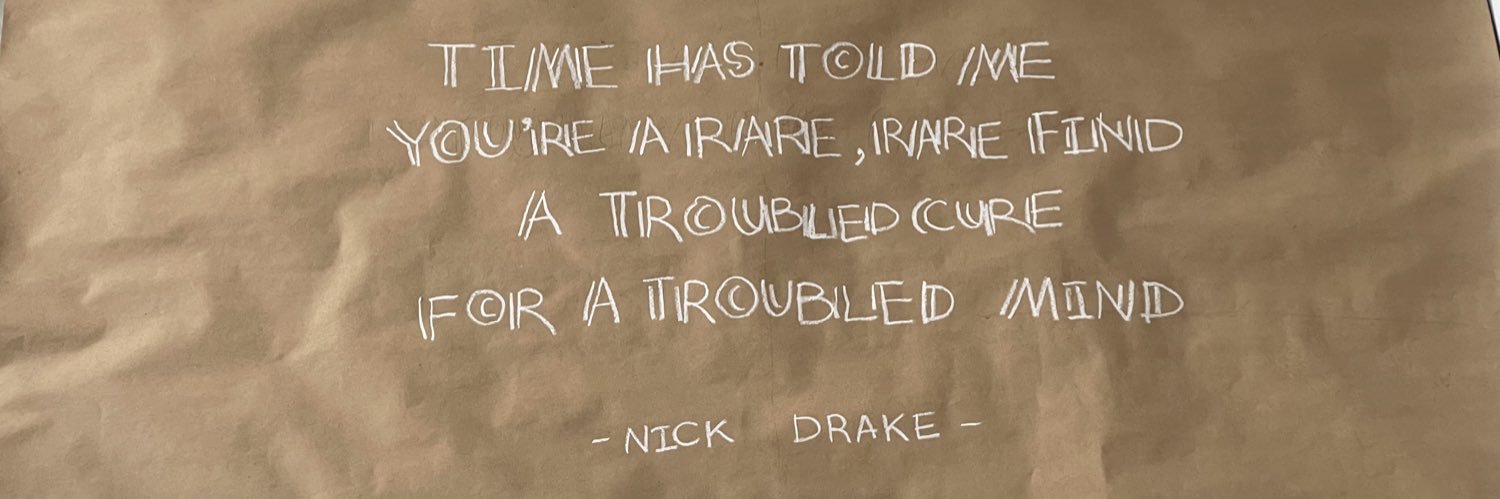 TIME HAS TOLD ME
YOU'RE A RARE, RARE FIND
A TROUBLED CURE
FOR A TROUBLED MIND
- NICK DRAKE -